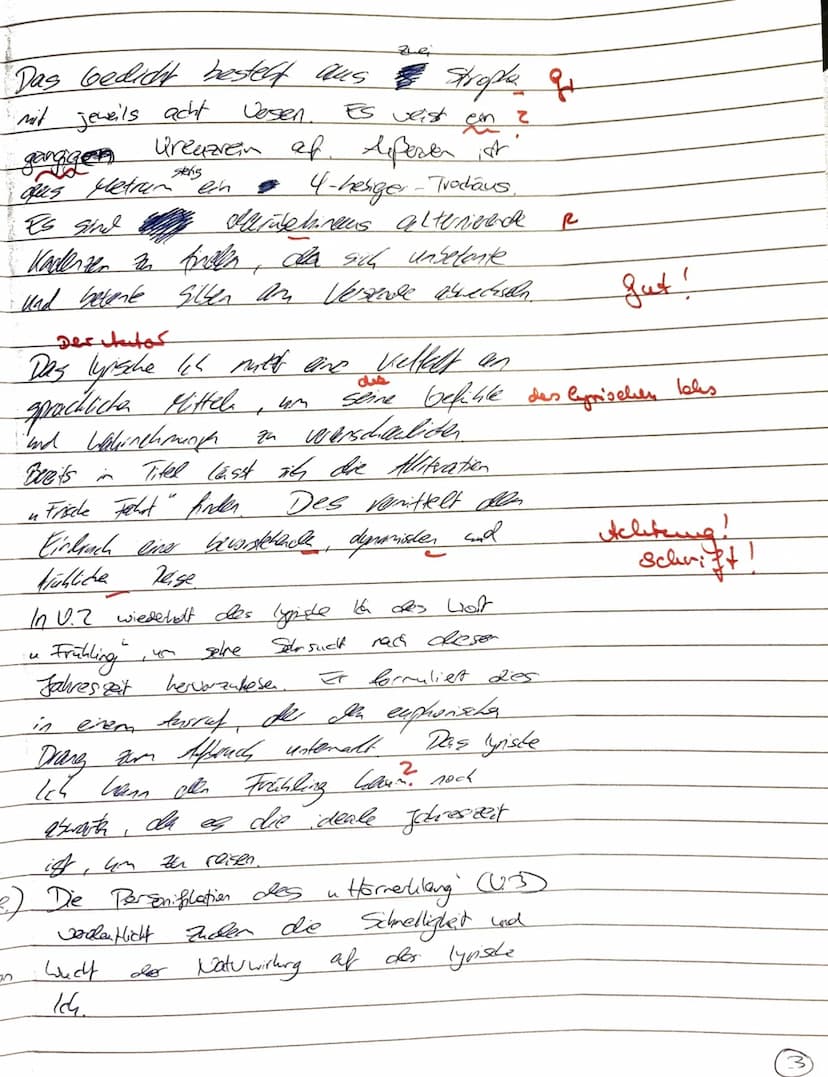 zwei
Das Gedicht besteht aus Strophe gr
mit jeweils acht Versen. Es weist ein ?
gängigen Kreuzreim auf. Außerdem ist
das Metrum stetig ein 4-hebiger-Trochäus.
Es sind darüberhinaus alternierende R
Kadenzen zu finden, da sich unbetonte
und betonte Silben am Versende abwechseln. gut!
Der Autor
Das lyrische Ich nutzt eine Vielfalt an
die
sprachlichen Mitteln, um seine Gefühle des lyrischen Ichs
und Wahrnehmungen zu veranschaulichen.
Bereits im Titel lässt sich die Alliteration
„Frische Fahrt" finden. Das vermittelt den
Eindruck einer bevorstehende, dynamischen und Achtung!
fröhliche Reise. Schrift!
In V.2 wiederholt das lyrische Ich das Wort
„Frühling", um seine Sehnsucht nach dieser
Jahreszeit hervorzuheben. Er formuliert dies
in einem Ausruf, der den euphorischen
Drang zum Aufbruch untermalt. Das lyrische
Ich kann den Frühling kaum ? noch
abwarten, da es die ideale Jahreszeit
ist, um zu reisen.
Die Personifikation des „Hörnerklang" (V.3)
verdeutlicht zudem die Schnelligkeit und
Wucht der Naturwirkung auf das lyrische
Ich.
3